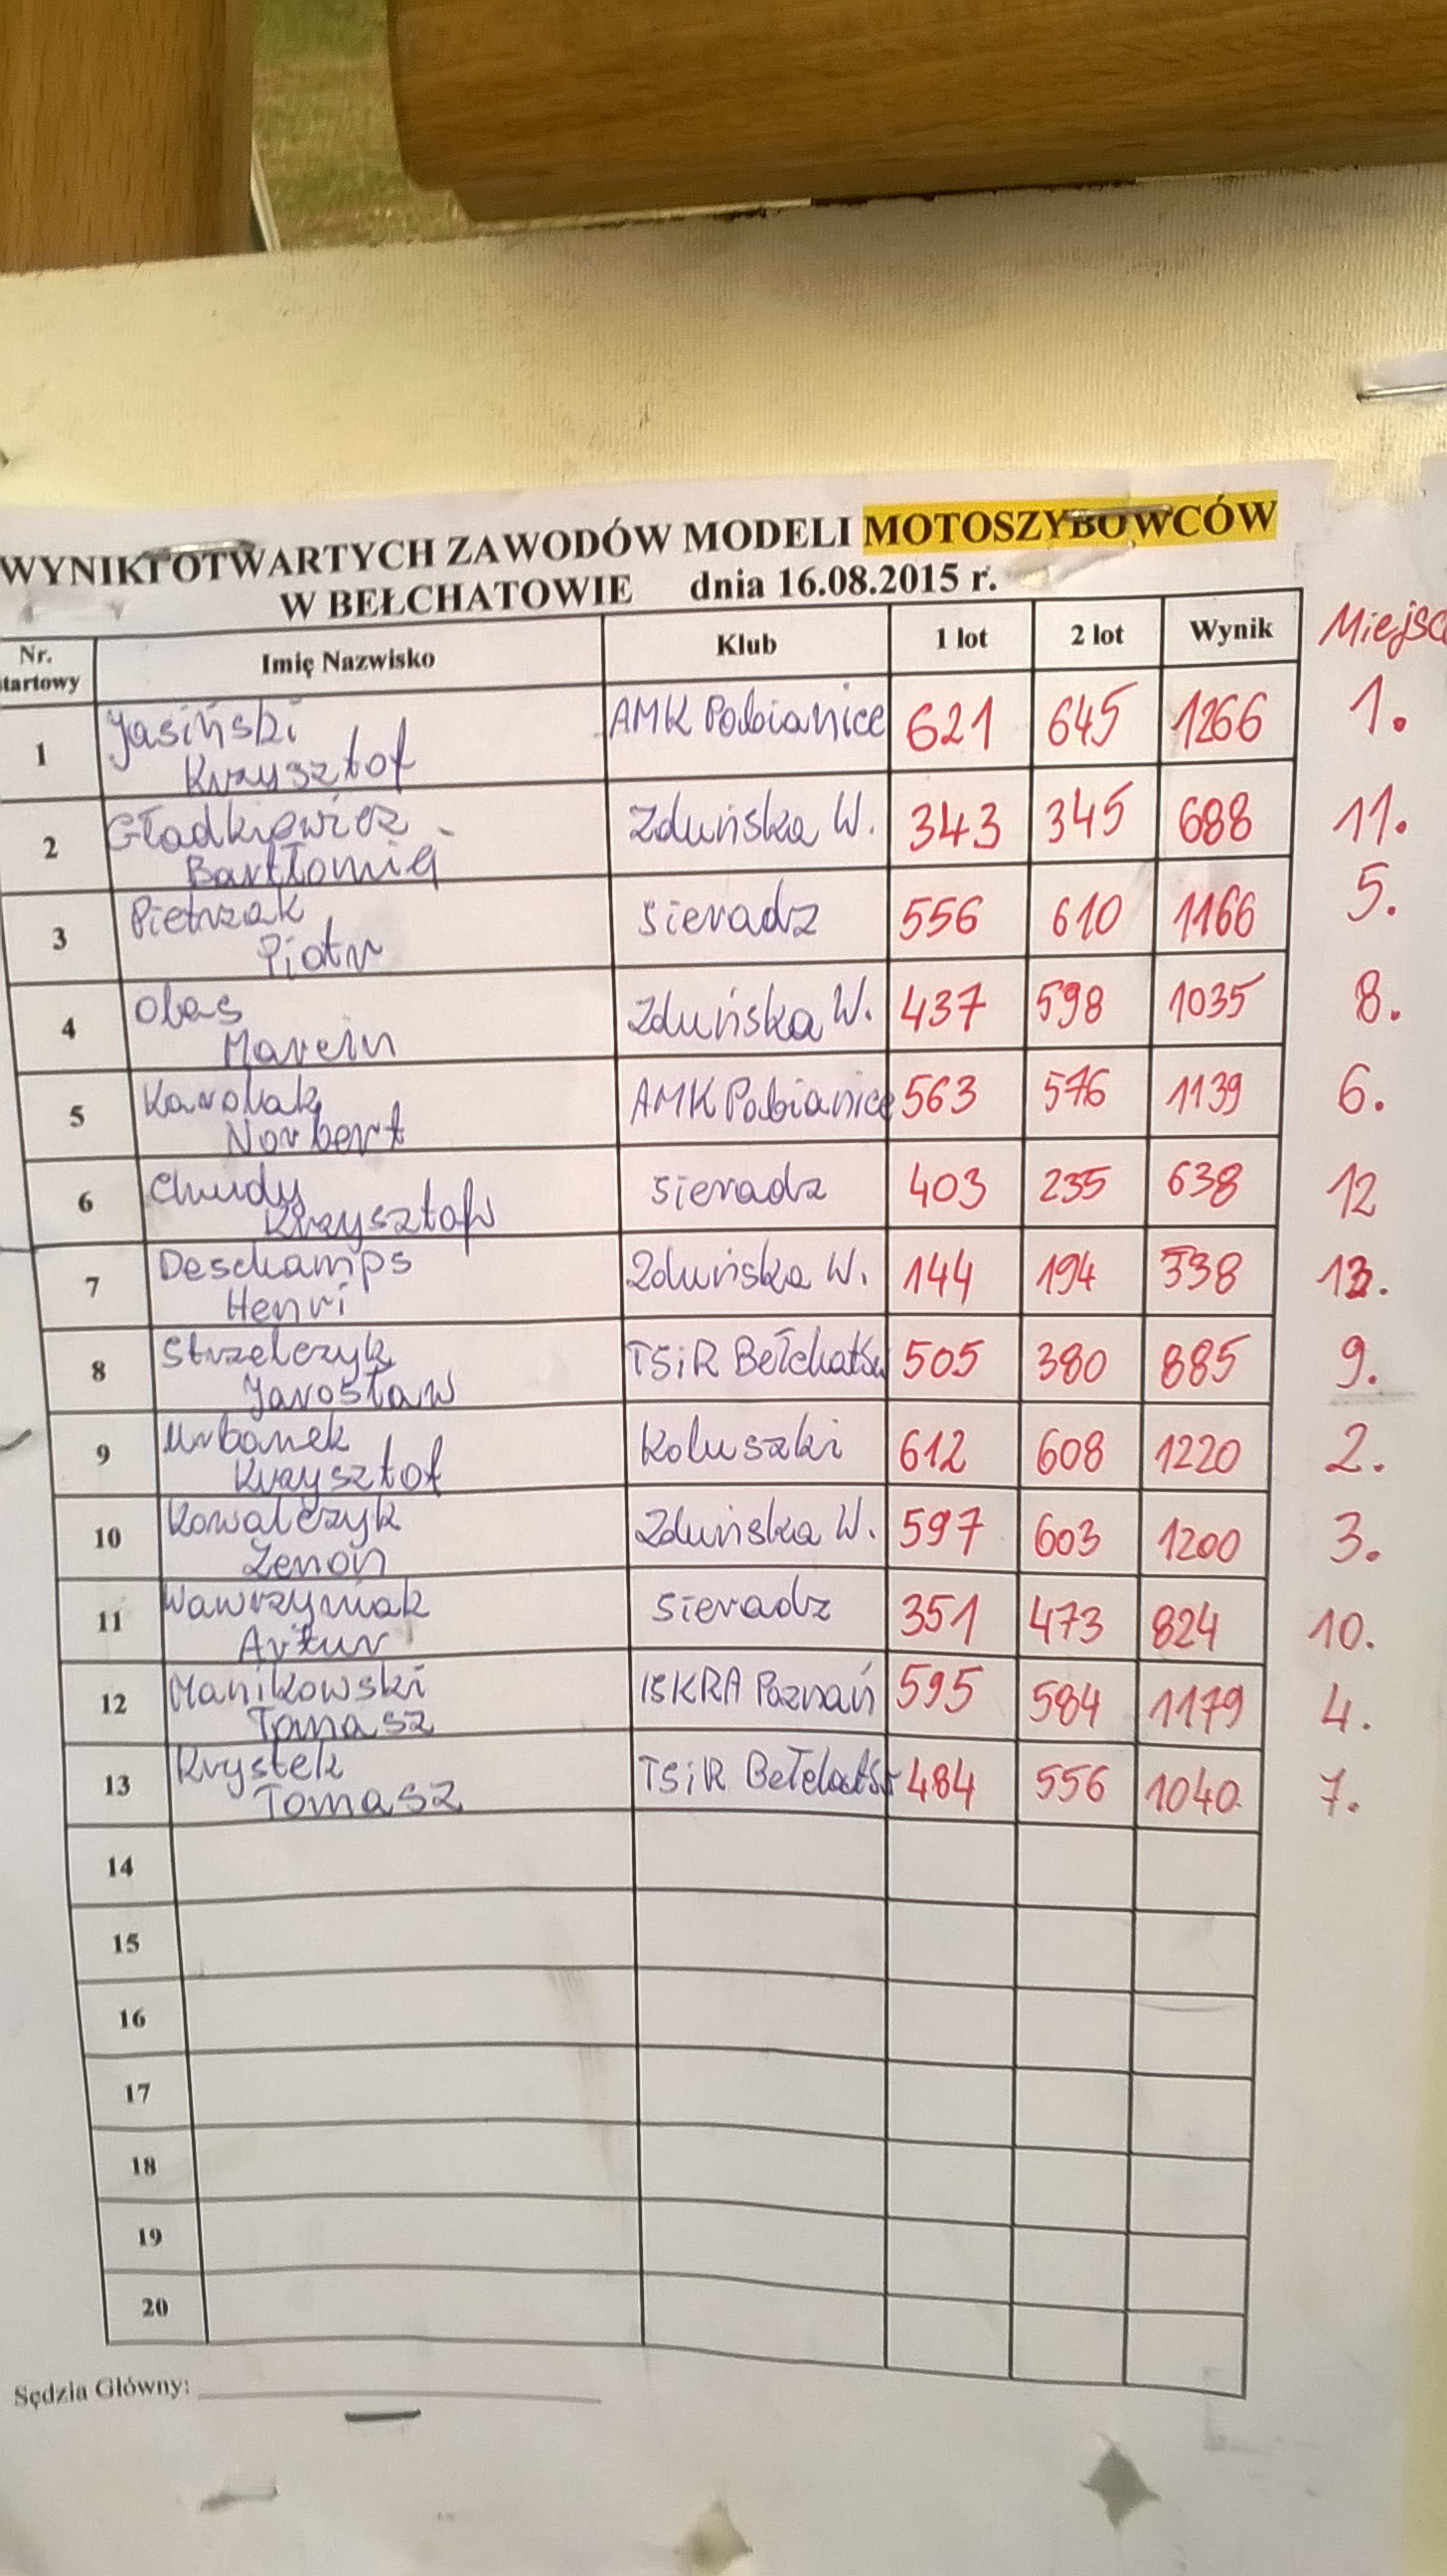 WYNIKI OTWARTYCH ZAWODÓW MODELI MOTOSZYBOWCÓW
W BEŁCHATOWIE dnia 16.08.2015 r.
Nr. tartowy Imię Nazwisko Klub 1 lot 2 lot Wynik Miejsc
1 Jasiński Krzysztof AMK Pabianice 621 645 1266 1.
2 Gładkiewicz Bartłomiej Zduńska W. 343 345 688 11.
3 Pietrzak Piotr Sieradz 556 610 1166 5.
4 Olas Marcin Zduńska W. 437 598 1035 8.
5 Karolak Norbert AMK Pabianice 563 576 1139 6.
6 Chudy Krzysztof Sieradz 403 235 638 12
7 Deschamps Henri Zduńska W. 144 194 338 13.
8 Strzelczyk Jarosław TSiR Bełchatów 505 380 885 9.
9 Urbanek Krzysztof Koluszki 612 608 1220 2.
10 Kowalczyk Zenon Zduńska W. 597 603 1200 3.
11 Wawrzyniak Artur Sieradz 351 473 824 10.
12 Manikowski Tomasz ISKRA Poznań 595 584 1179 4.
13 Krystek Tomasz TSiR Bełchatów 484 556 1040 7.
14
15
16
17
18
19
20
Sędzia Główny: